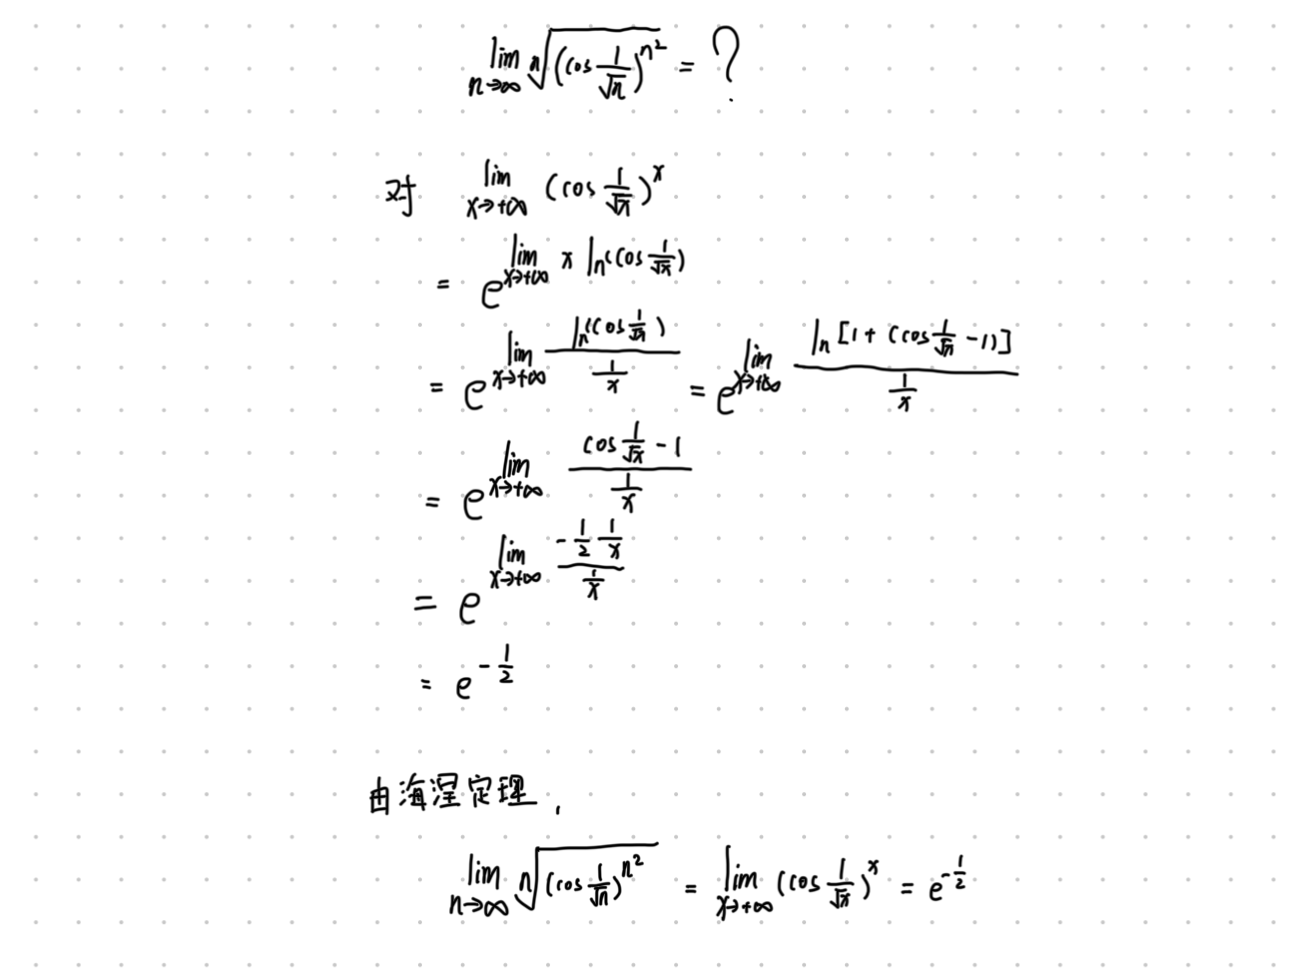 lim n→∞ ⁿ√((cos 1/√n)^n²) = ?
对 lim x→+∞ (cos 1/√x)^x
= e^(lim x→+∞ x ln(cos 1/√x))
= e^(lim x→+∞ ln(cos 1/√x) / (1/x)) = e^(lim x→+∞ ln[1+(cos 1/√x -1)] / (1/x))
= e^(lim x→+∞ (cos 1/√x - 1) / (1/x))
= e^(lim x→+∞ (-1/2 1/x) / (1/x))
= e^(-1/2)
由海涅定理,
lim n→∞ ⁿ√((cos 1/√n)^n²) = lim x→+∞ (cos 1/√x)^x = e^(-1/2)